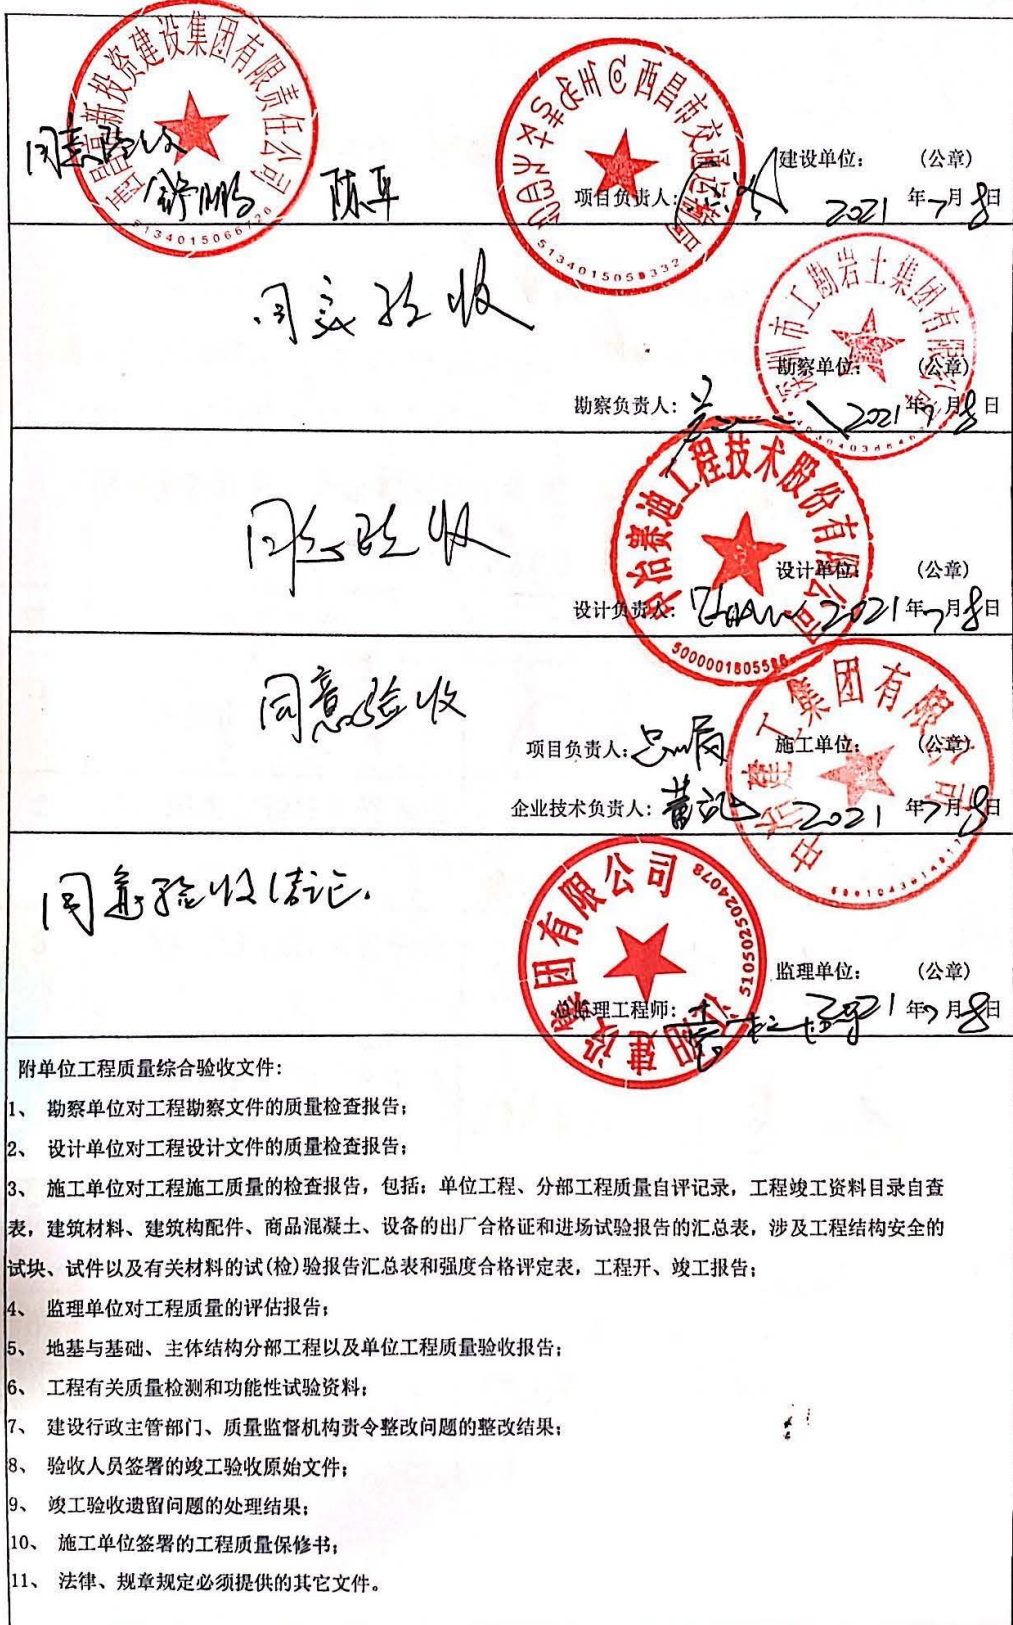 新投资建设集团有限责任公司
5134015066726
西昌市交通运输局
5134015058332
同意验收
舒鹏 陈平
建设单位: (公章)
项目负责人:
2021 年7月8日
同意验收
深圳市工勘岩土集团有限公司
勘察单位: (公章)
勘察负责人:
2021年7月8日
同意验收
中冶赛迪工程技术股份有限公司
设计单位: (公章)
设计负责人:
2021年7月8日
同意验收
中冶建工集团有限公司
项目负责人: 施工单位: (公章)
企业技术负责人: 2021 年7月8日
同意验收
建设集团有限公司
5105025024078
监理单位: (公章)
总监理工程师: 2021年7月8日
附单位工程质量综合验收文件:
1、 勘察单位对工程勘察文件的质量检查报告;
2、 设计单位对工程设计文件的质量检查报告;
3、 施工单位对工程施工质量的检查报告, 包括: 单位工程、分部工程质量自评记录, 工程竣工资料目录自查
表, 建筑材料、建筑构配件、商品混凝土、设备的出厂合格证和进场试验报告的汇总表, 涉及工程结构安全的
试块、试件以及有关材料的试(检)验报告汇总表和强度合格评定表, 工程开、竣工报告;
4、 监理单位对工程质量的评估报告;
5、 地基与基础、主体结构分部工程以及单位工程质量验收报告;
6、 工程有关质量检测和功能性试验资料;
7、 建设行政主管部门、质量监督机构责令整改问题的整改结果;
8、 验收人员签署的竣工验收原始文件;
9、 竣工验收遗留问题的处理结果;
10、 施工单位签署的工程质量保修书;
11、 法律、规章规定必须提供的其它文件。